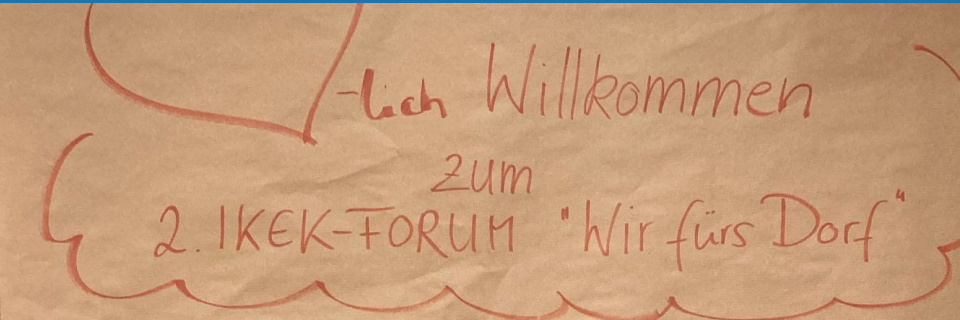 -lich Willkommen
zum
2. IKEK-FORUM "Wir fürs Dorf"